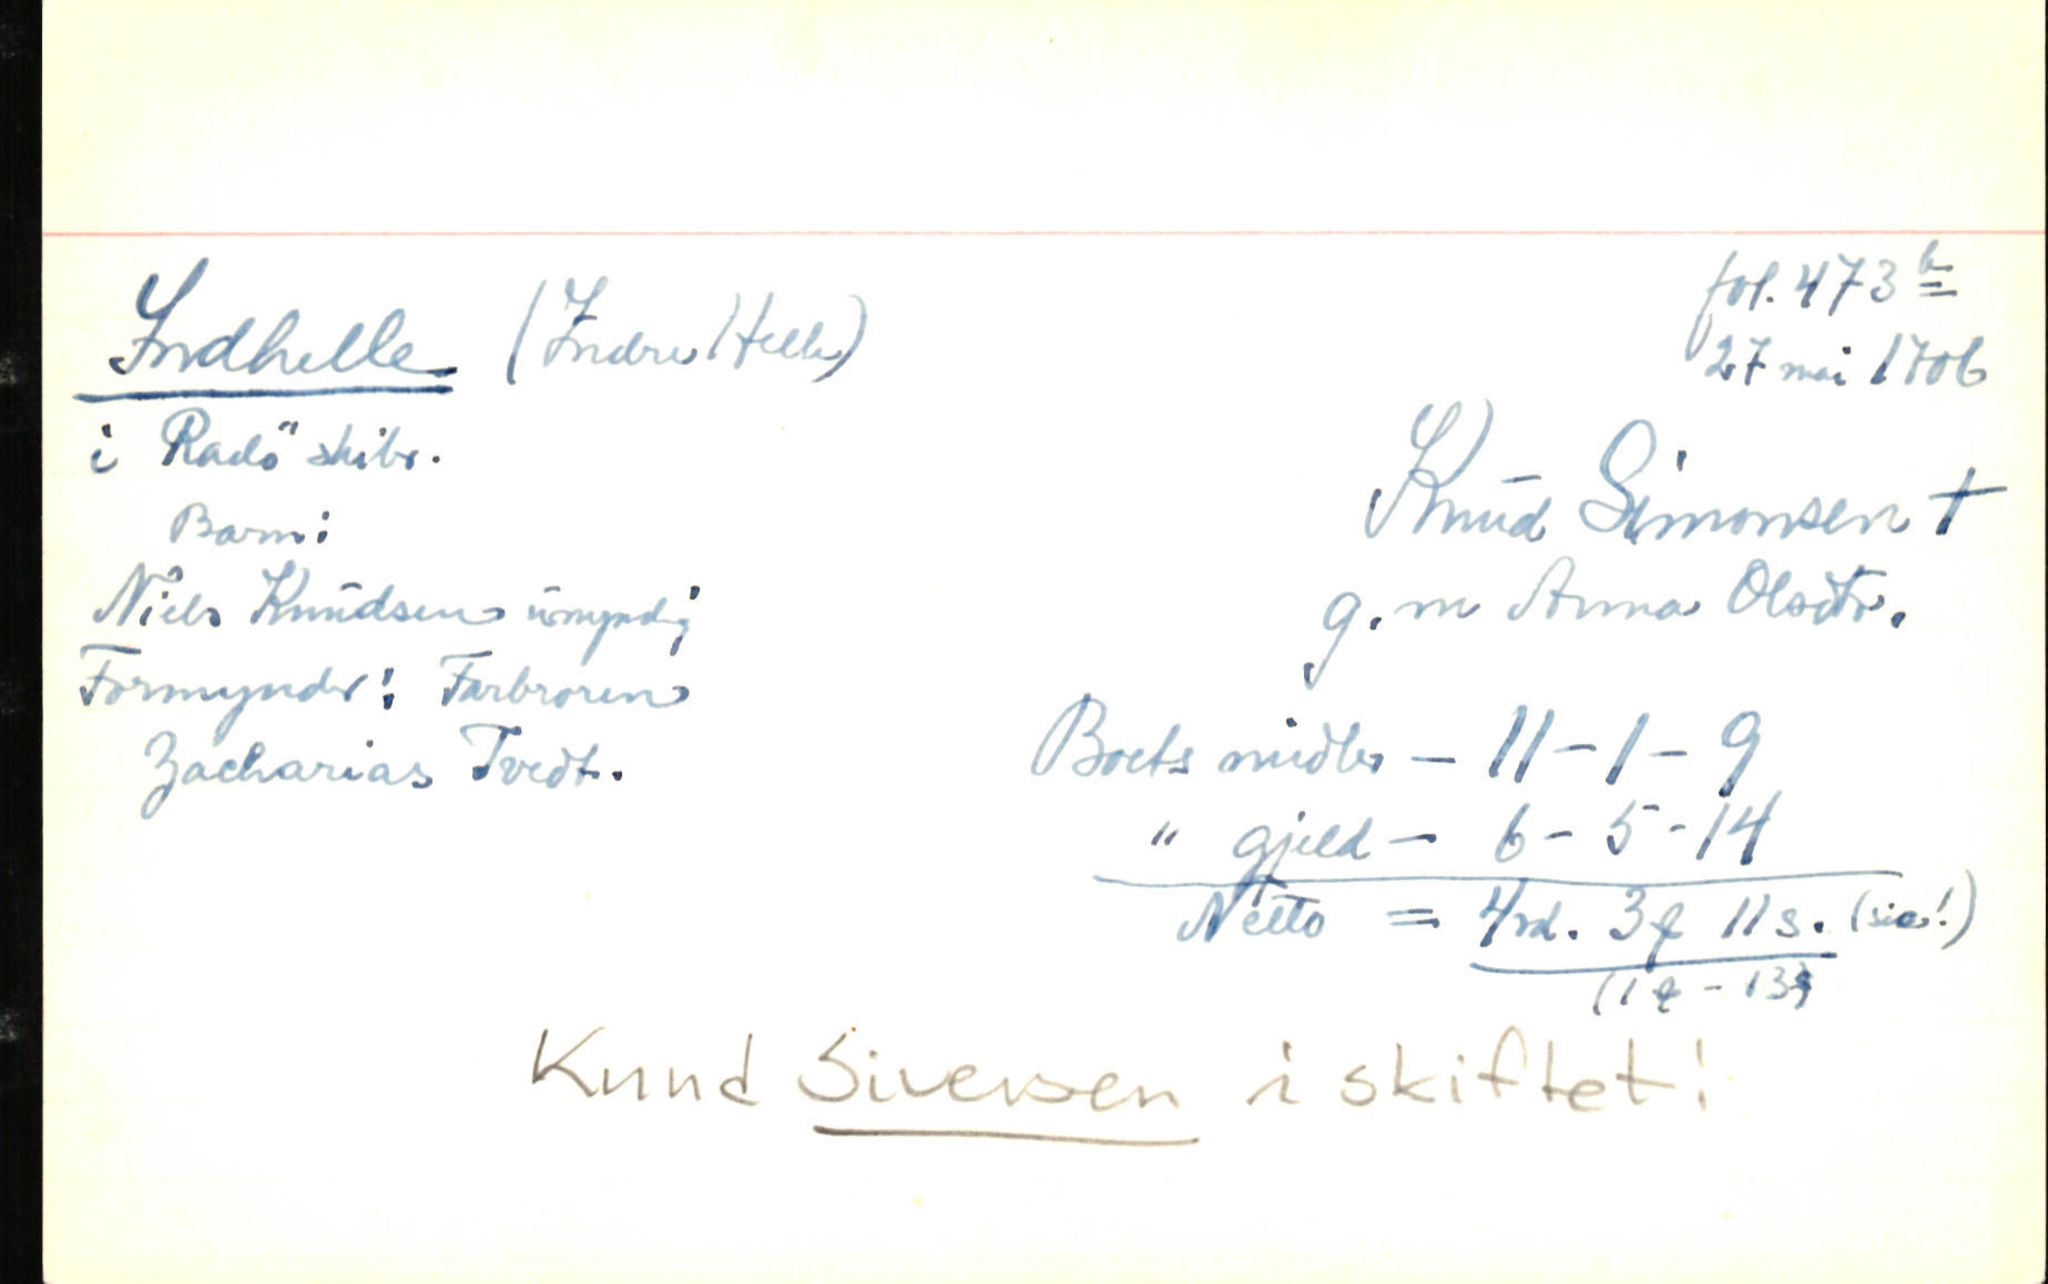 Indhelle (Indre Helle)
fol. 473 b
27 mai 1706
i Radö skibr.
Knud Simonsen †
g. m Anna Olsdtr.
Barn:
Niels Knudsen umyndig
Formynder: Farbroren
Zacharias Tvedt.
Boets midler – 11 – 1 – 9
" gjeld – 6 – 5 – 14
Netto = 4 rd. 3 ꝑ 11 s. (sic!)
(1 ꝑ – 13)
Knud Siversen i skiftet!